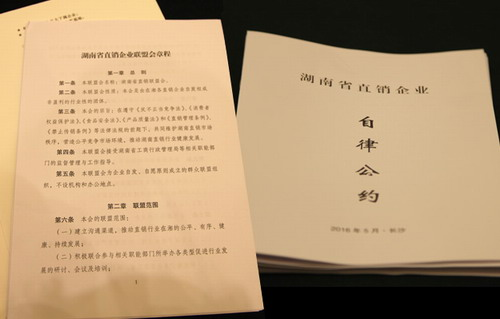 湖南省直销企业联盟会章程
第一章 总 则
第一条 本联盟会名称：湖南省直销联盟会。
第三条 本会的宗旨：在遵守《反不正当竞争法》、《消费者
权益保护法》、《食品安全法》、《产品质量法》和《直销管理条例》、
《禁止传销条例》等法律法规的前提下，共同维护湖南直销市场
秩序，营造公平竞争市场环境，推动湖南直销行业健康发展。
第四条 本联盟会接受湖南省工商行政管理局等相关职能部
门的监督管理与工作指导。
第五条 本联盟会为企业自发、自愿原则成立的群众联盟组
织，不设机构和办公地点。
第二章 联盟范围
第六条 本会的联盟范围：
（一）建立沟通渠道，推动直销行业在湘的公平、有序、健
康、持续发展；
（二）积极联合参与相关职能部门所举办各类型促进行业发
展的研讨、会议及培训；
1
湖南省直销企业
自律公约
2016年5月·长沙